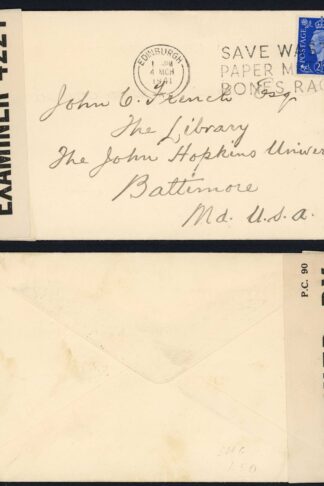 EXAMINER 4221
EDINBURGH
4 MCH
1941
SAVE WA
PAPER M
BONES, RAG
POSTAGE
John C. French Esq
The Library
The John Hopkins Univer
Baltimore
Md. U.S.A.
P.C. 90